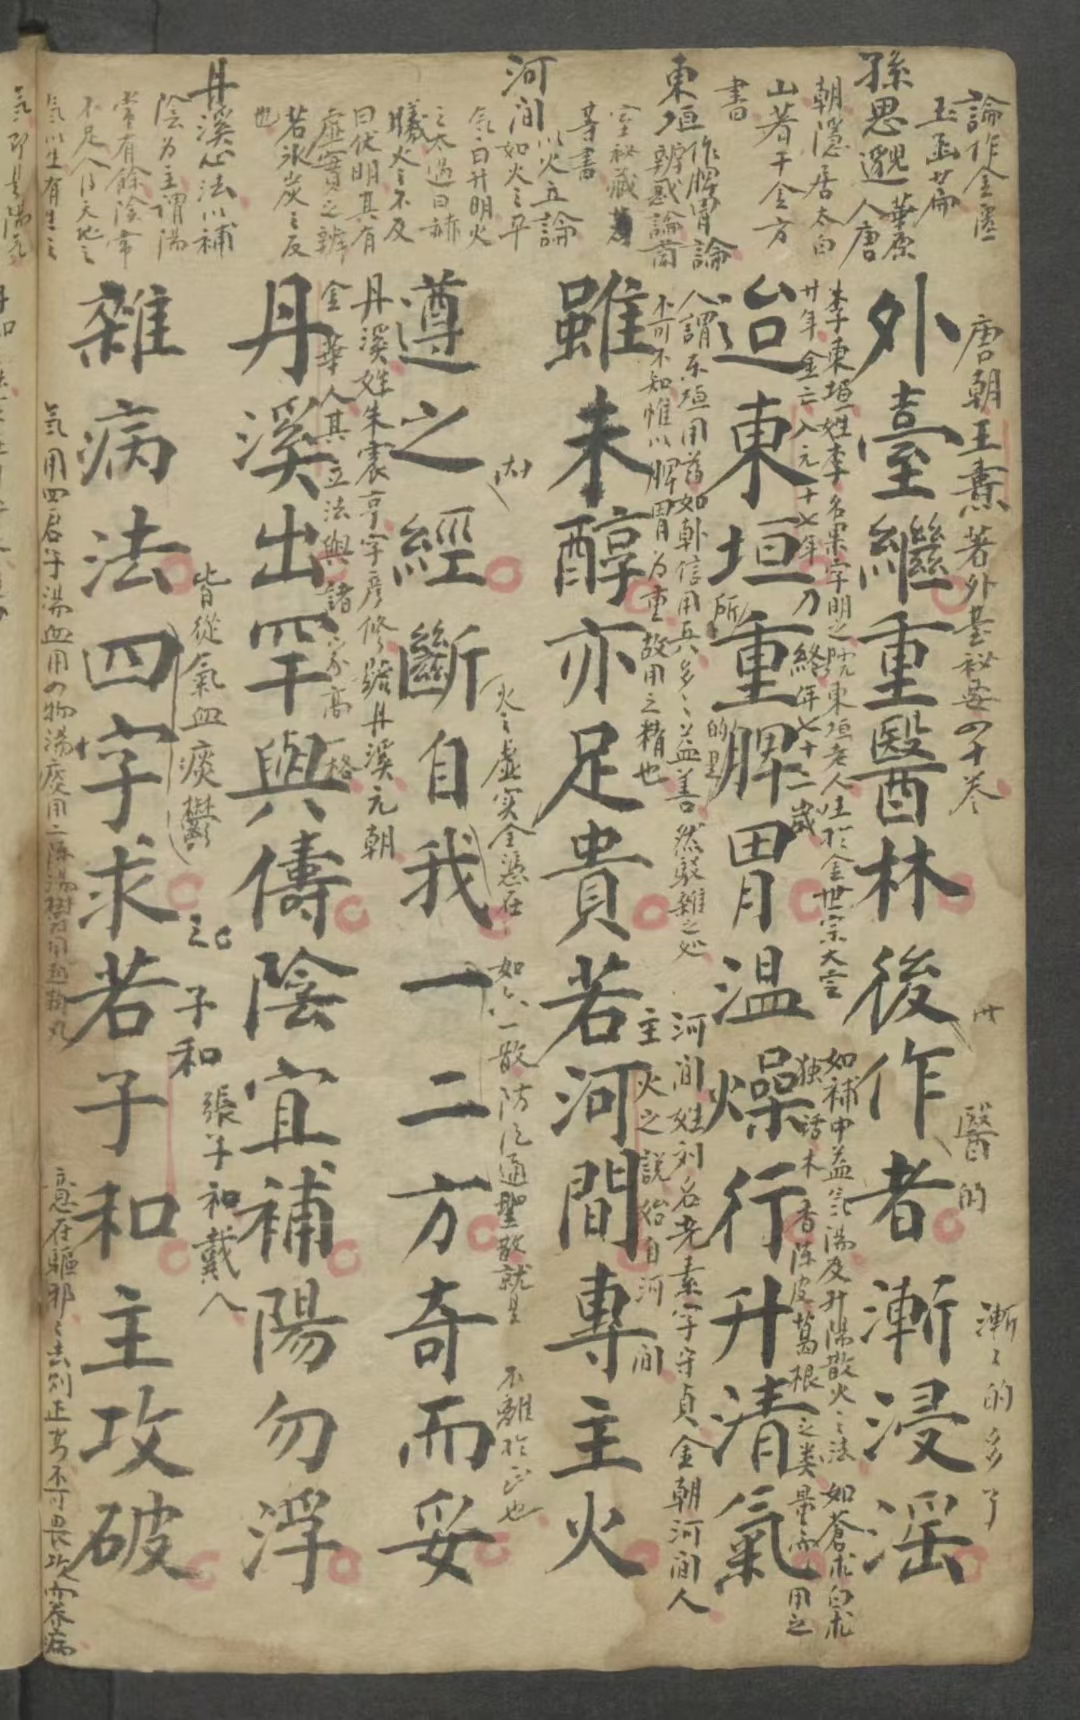 論作金匱
玉函廿扁
孫思邈華原
人唐
朝隱居太白
山著千金方
書
東垣作脾胃論
辨惑論蘭
室秘藏
等書
河間以火立論
如火之平
氣曰升明火
之太過曰赫
曦火之不及
曰伏明其有
虛實之辨
若氷炭之反
也
丹溪心法以補
陰為主謂陽
常有餘陰常
不足人得天地之
唐朝王燾著外臺秘要四十卷
醫的
漸漸的多了
外臺繼重醫林後作者漸浸淫
李東垣姓李名杲字明之院東垣老人生於金世宗大定
廿年金亡入元十七年乃終年七十二歲
如補中益氣湯及升陽散火之法如蒼朮白朮
独活木香陳皮葛根之类是亦用之
迨東垣重脾胃温燥行升清氣
所
的里
人謂東垣用药如韓信用兵多多益善然駁雜之处
不可不知惟以脾胃为重故用之精也
河间姓刘名完素字守貞金朝河间人
主火之説始自河间
雖未醇亦足貴若河間專主火
火之虛实全憑在
如六一散防风通聖散就是
不離於正也
遵之經斷自我一二方奇而妥
丹溪姓朱震亨字彦修號丹溪元朝
金華人其立法與諸家高一格
丹溪出罕與儔陰宜補陽勿浮
皆從氣血痰鬱
子和張子和戴人
雜病法四字求若子和主攻破
氣用四君子湯血用四物湯痰用二陳湯鬱用越鞠丸
意在驅邪邪去則正安不可畏攻而养病